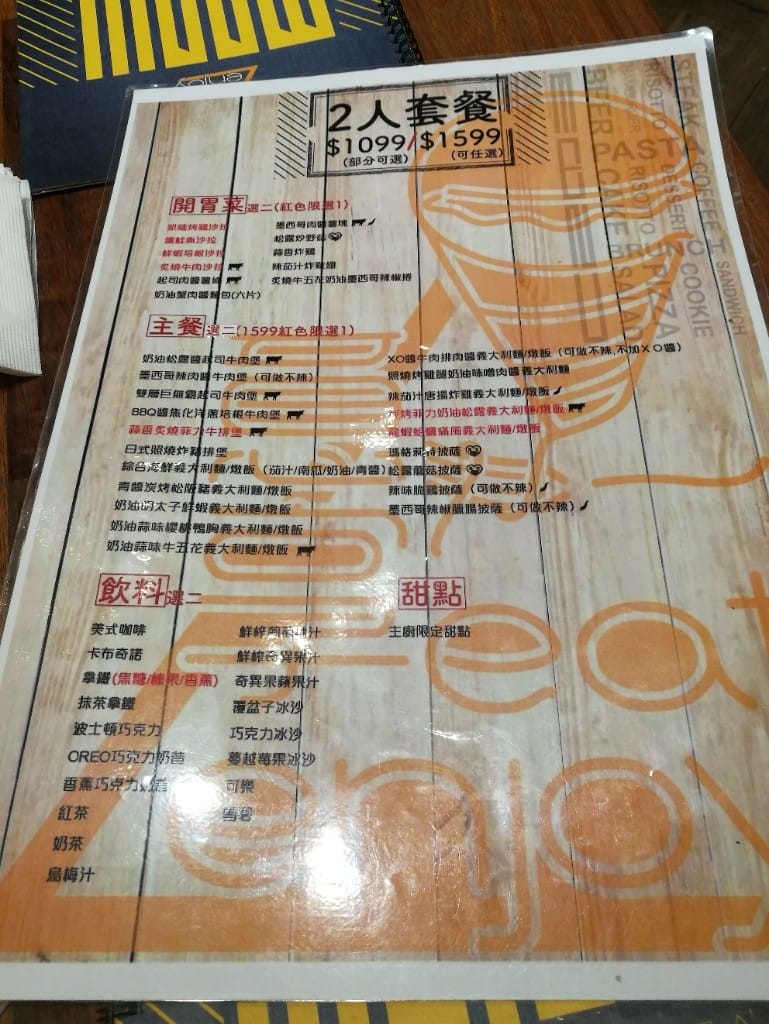 MENU
enjoy
2人套餐
$1099/$1599
(部分可選) (可任選)
STEAK
RISOTTO
BEER
PASTA
COFFEE
DESSERT
RISOTTO
CAKE
PIZZA
COOKIE
SANDWICH
SALAD
MENU
開胃菜選二(紅色限選1)
凱薩烤雞沙拉 墨西哥肉醬薯塊
燻鮭魚沙拉 松露炒野菇
鮮蝦培根沙拉 蒜香炸雞
炙燒牛肉沙拉 辣茄汁炸雞翅
起司肉醬薯條 炙燒牛五花奶油墨西哥辣椒捲
奶油蟹肉醬麵包(六片)
主餐選二(1599紅色限選1)
奶油松露醬起司牛肉堡 XO醬牛肉排肉醬義大利麵/燉飯(可做不辣,不加XO醬)
墨西哥辣肉醬牛肉堡(可做不辣) 照燒烤雞腿奶油味噌肉醬義大利麵
雙層巨無霸起司牛肉堡 辣茄汁唐揚炸雞義大利麵/燉飯
BBQ醬焦化洋蔥培根牛肉堡 烤菲力奶油松露義大利麵/燉飯
蒜香炙燒菲力牛排堡 龍蝦蛤蠣痛風義大利麵/燉飯
日式照燒炸豬排堡 瑪格莉特披薩
綜合海鮮義大利麵/燉飯(茄汁/南瓜/奶油/青醬) 松露蘑菇披薩
青醬炭烤松阪豬義大利麵/燉飯 辣味脆雞披薩(可做不辣)
奶油明太子鮮蝦義大利麵/燉飯 墨西哥辣椒臘腸披薩(可做不辣)
奶油蒜味櫻桃鴨胸義大利麵/燉飯
奶油蒜味牛五花義大利麵/燉飯
飲料選二 甜點
美式咖啡 鮮榨葡萄柚汁 主廚限定甜點
卡布奇諾 鮮榨奇異果汁
拿鐵(焦糖/榛果/香蕉) 奇異果蘋果汁
抹茶拿鐵 覆盆子冰沙
波士頓巧克力 巧克力冰沙
OREO巧克力奶昔 蔓越莓果冰沙
香蕉巧克力奶昔 可樂
紅茶 雪碧
奶茶
烏梅汁
eat
enjoy